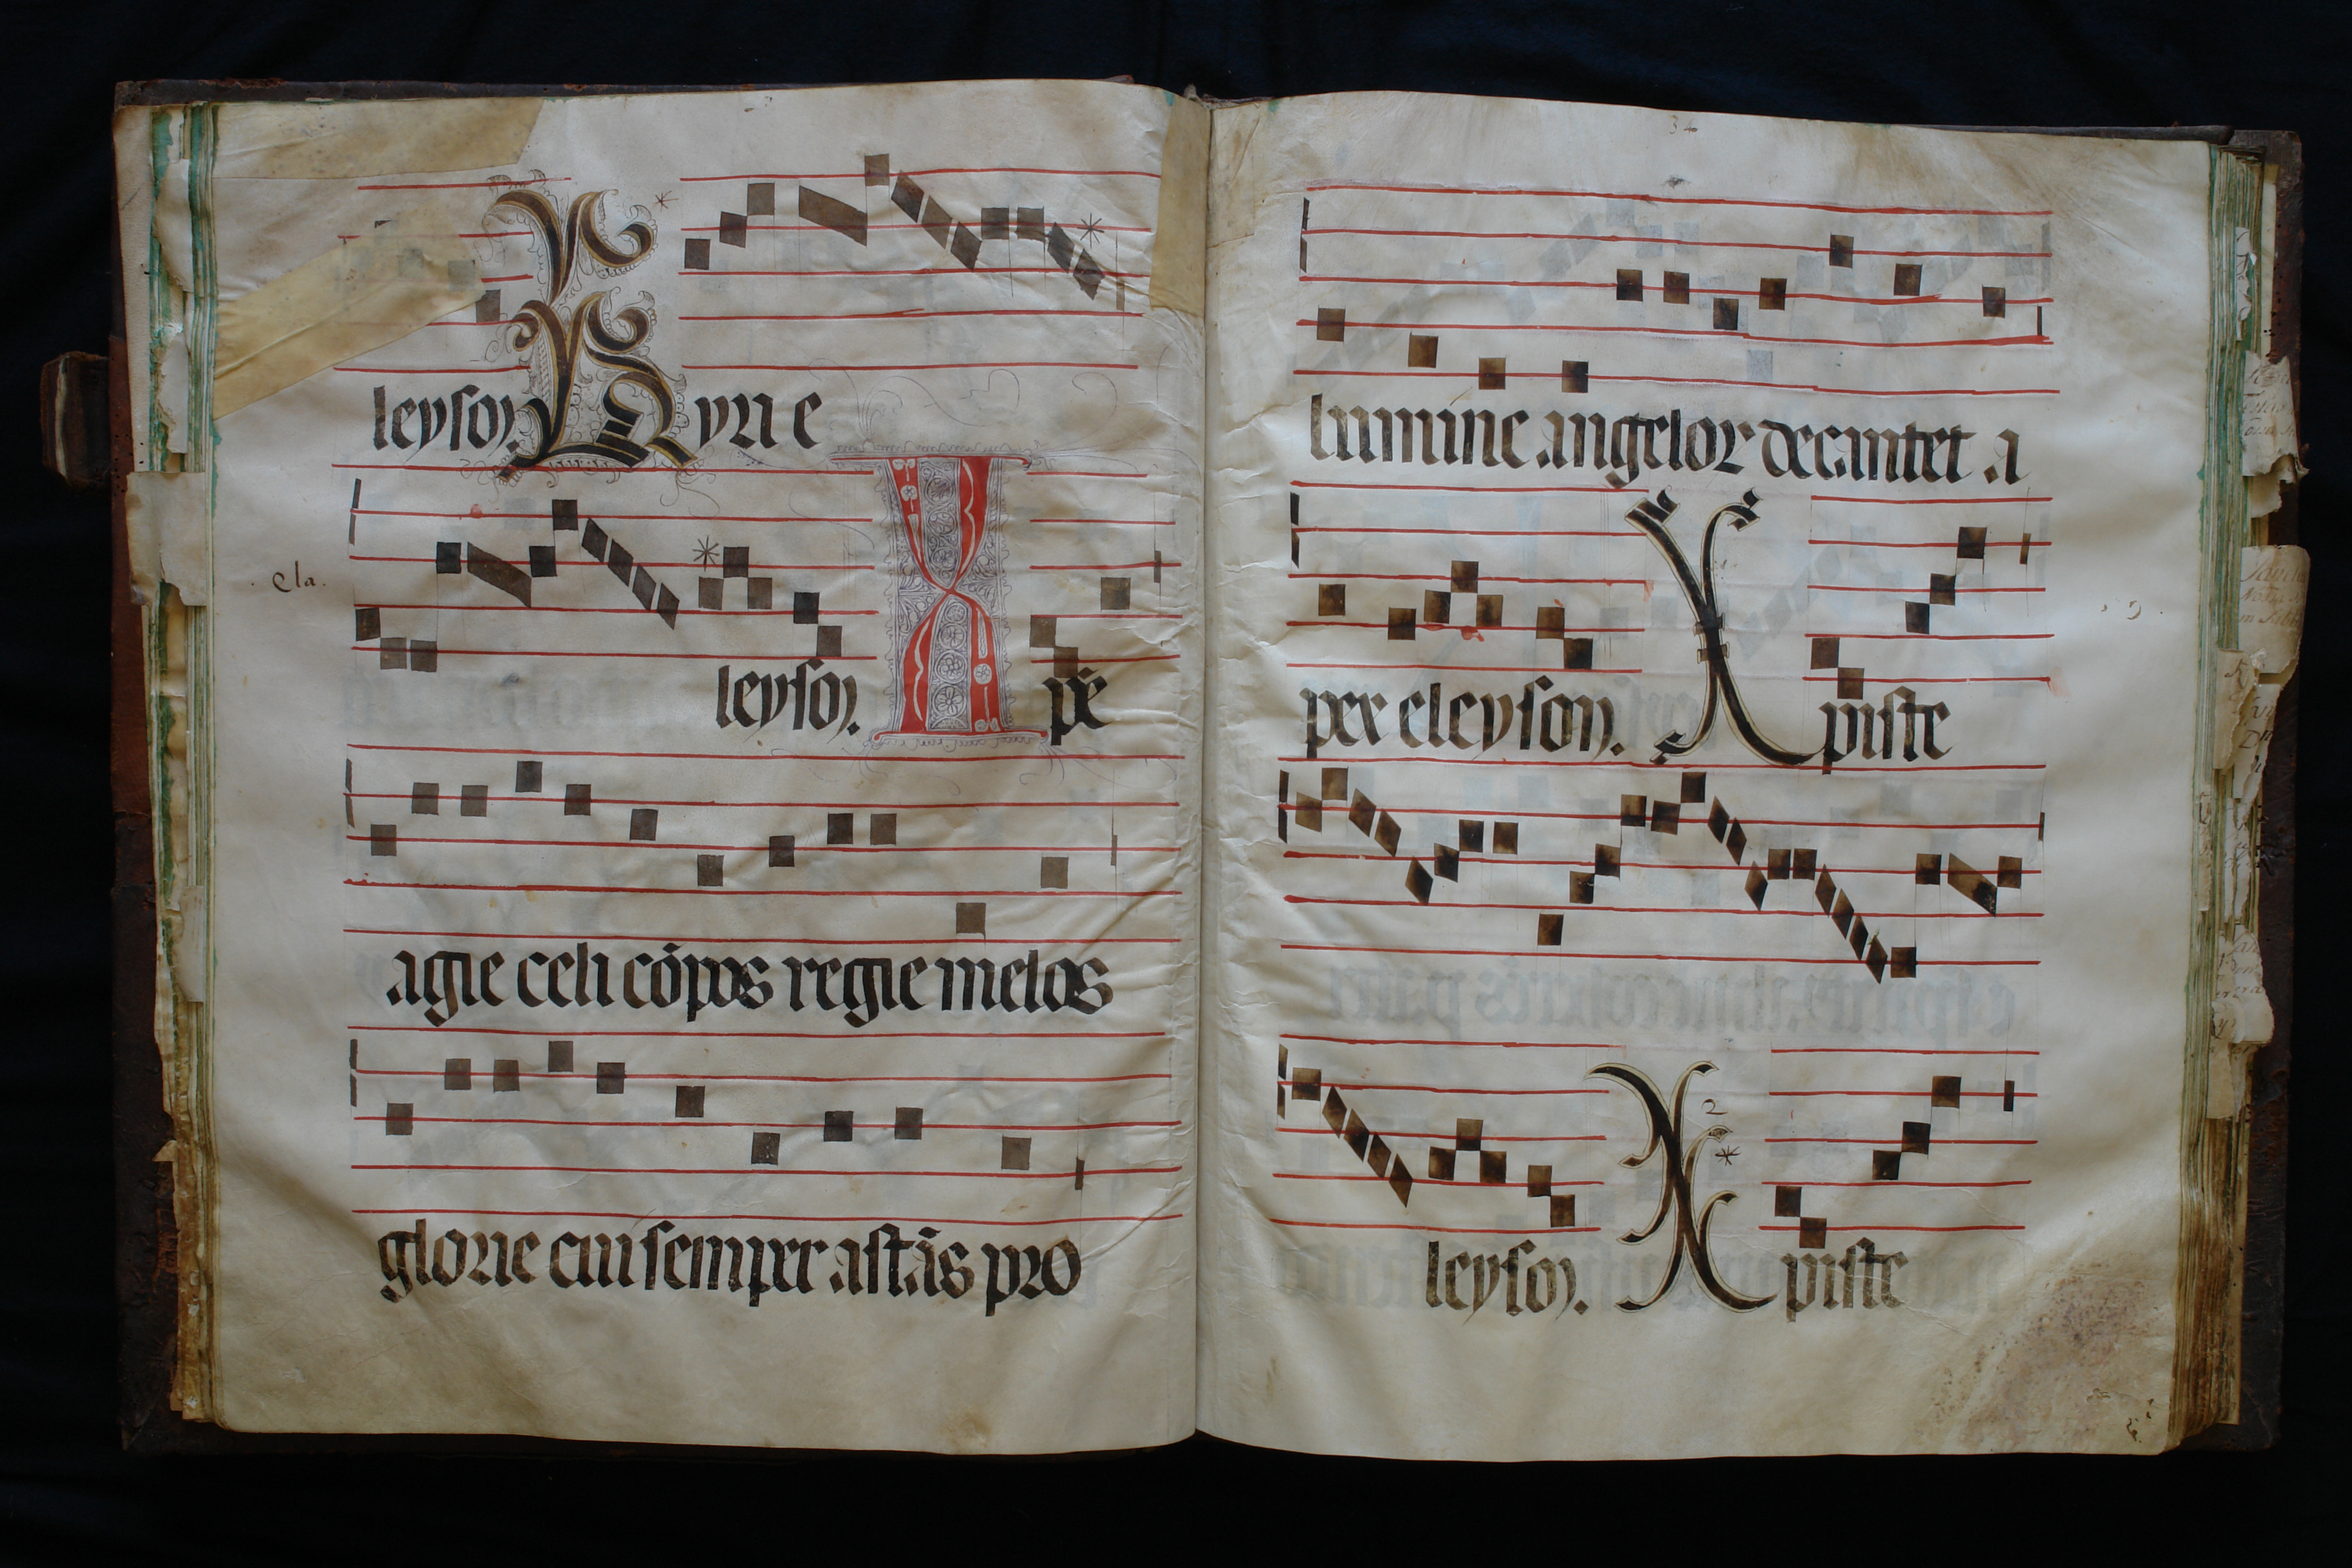 leyson. Kyrie
ela.
leyson. Xp̄e
agie celi cōpos regie melos
glorie cui semper astās pro
34
lumine angelor decantet a
per eleyson. Xpiste
leyson. Xpiste
2